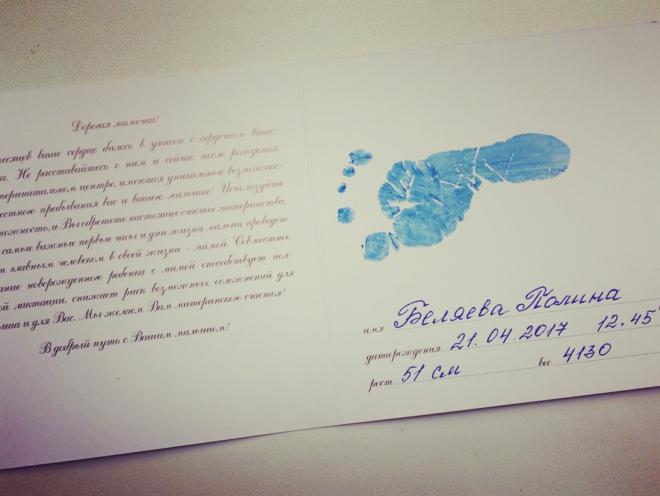 Дорогая мамочка!
месяцев ваше сердце билось в унисон с сердечком ваше-
Не расставайтесь с ним и сейчас, после рождения.
перинатальном центре, имеются уникальные возможно-
естного пребывания вас и вашего малыша! Используйте
можность, и Вы обретете настоящее счастье материнства,
самые важные первые часы и дни жизни малыш проведет
главным человеком в своей жизни - мамой. Совместное
ание новорожденного ребенка с мамой способствует пол-
ой лактации, снижает риск возможных осложнений для
ыша и для Вас. Мы желаем Вам материнского счастья!
В добрый путь с Вашим малышом!
имя Беляева Полина
дата рождения 21.04.2017 12.45
рост 51 см вес 4130